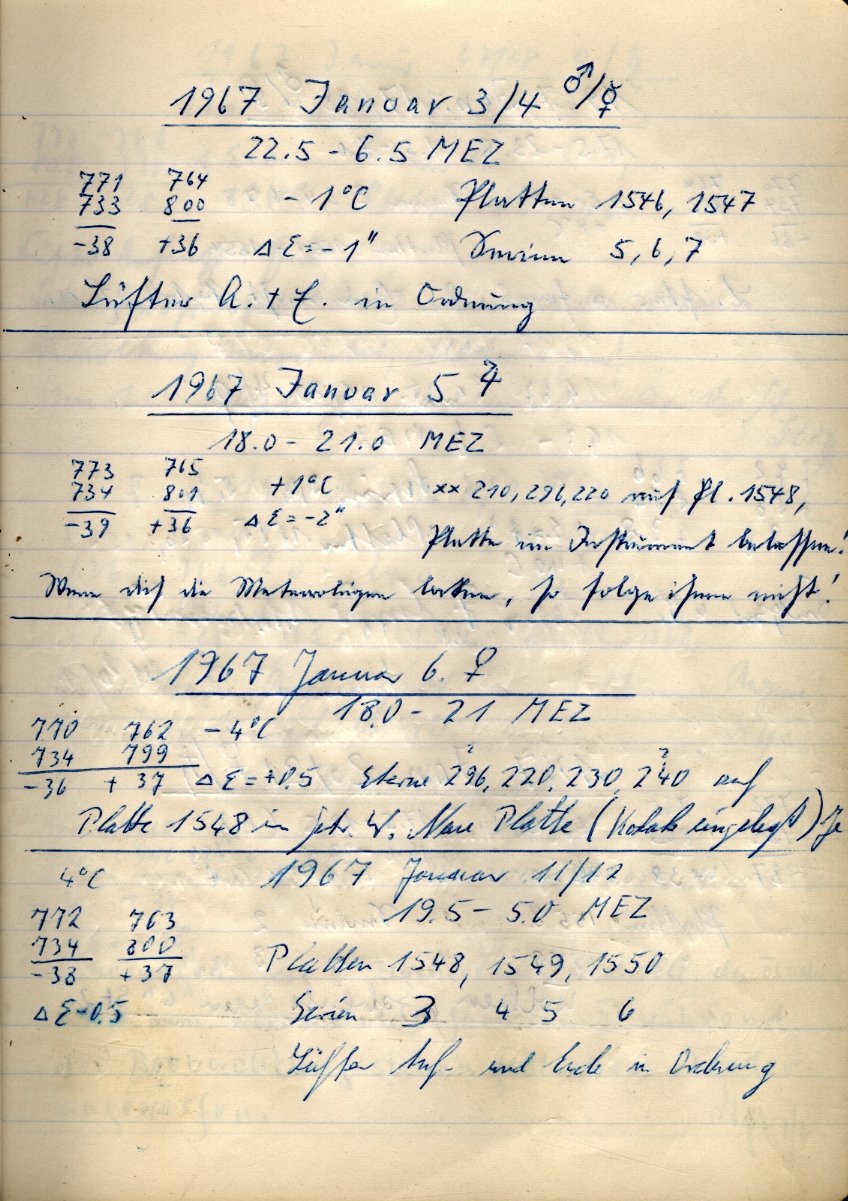 1967 Januar 3/4 ♂/☿
22.5 – 6.5 MEZ
771 764
733 800 – 1°C Platten 1546, 1547
-38 +36 Δ Σ = – 1" Serien 5, 6, 7
Lüfter A. + E. in Ordnung
1967 Januar 5 ♃
18.0 – 21.0 MEZ
773 765
734 801 + 1°C xx 210, 296, 220 auf Pl. 1548,
-39 +36 Δ Σ = – 2"
Platte im Instrument belassen!
Wenn dich die Meteorologen locken, so folge ihnen nicht!
1967 Januar 6. ♀
18.0 – 21 MEZ
770 762 – 4°C
734 799
-36 + 37 Δ Σ = +0.5 Sterne 296, 220, 230, 240 auf
Platte 1548 im Instr. W. Neue Platte (Kodak eingelegt)
4°C 1967 Januar 11/12
772 763 19.5 – 5.0 MEZ
734 800
-38 +37 Platten 1548, 1549, 1550
Δ Σ -0.5 Serien 3 4 5 6
Lüfter Anf. und Ende in Ordnung